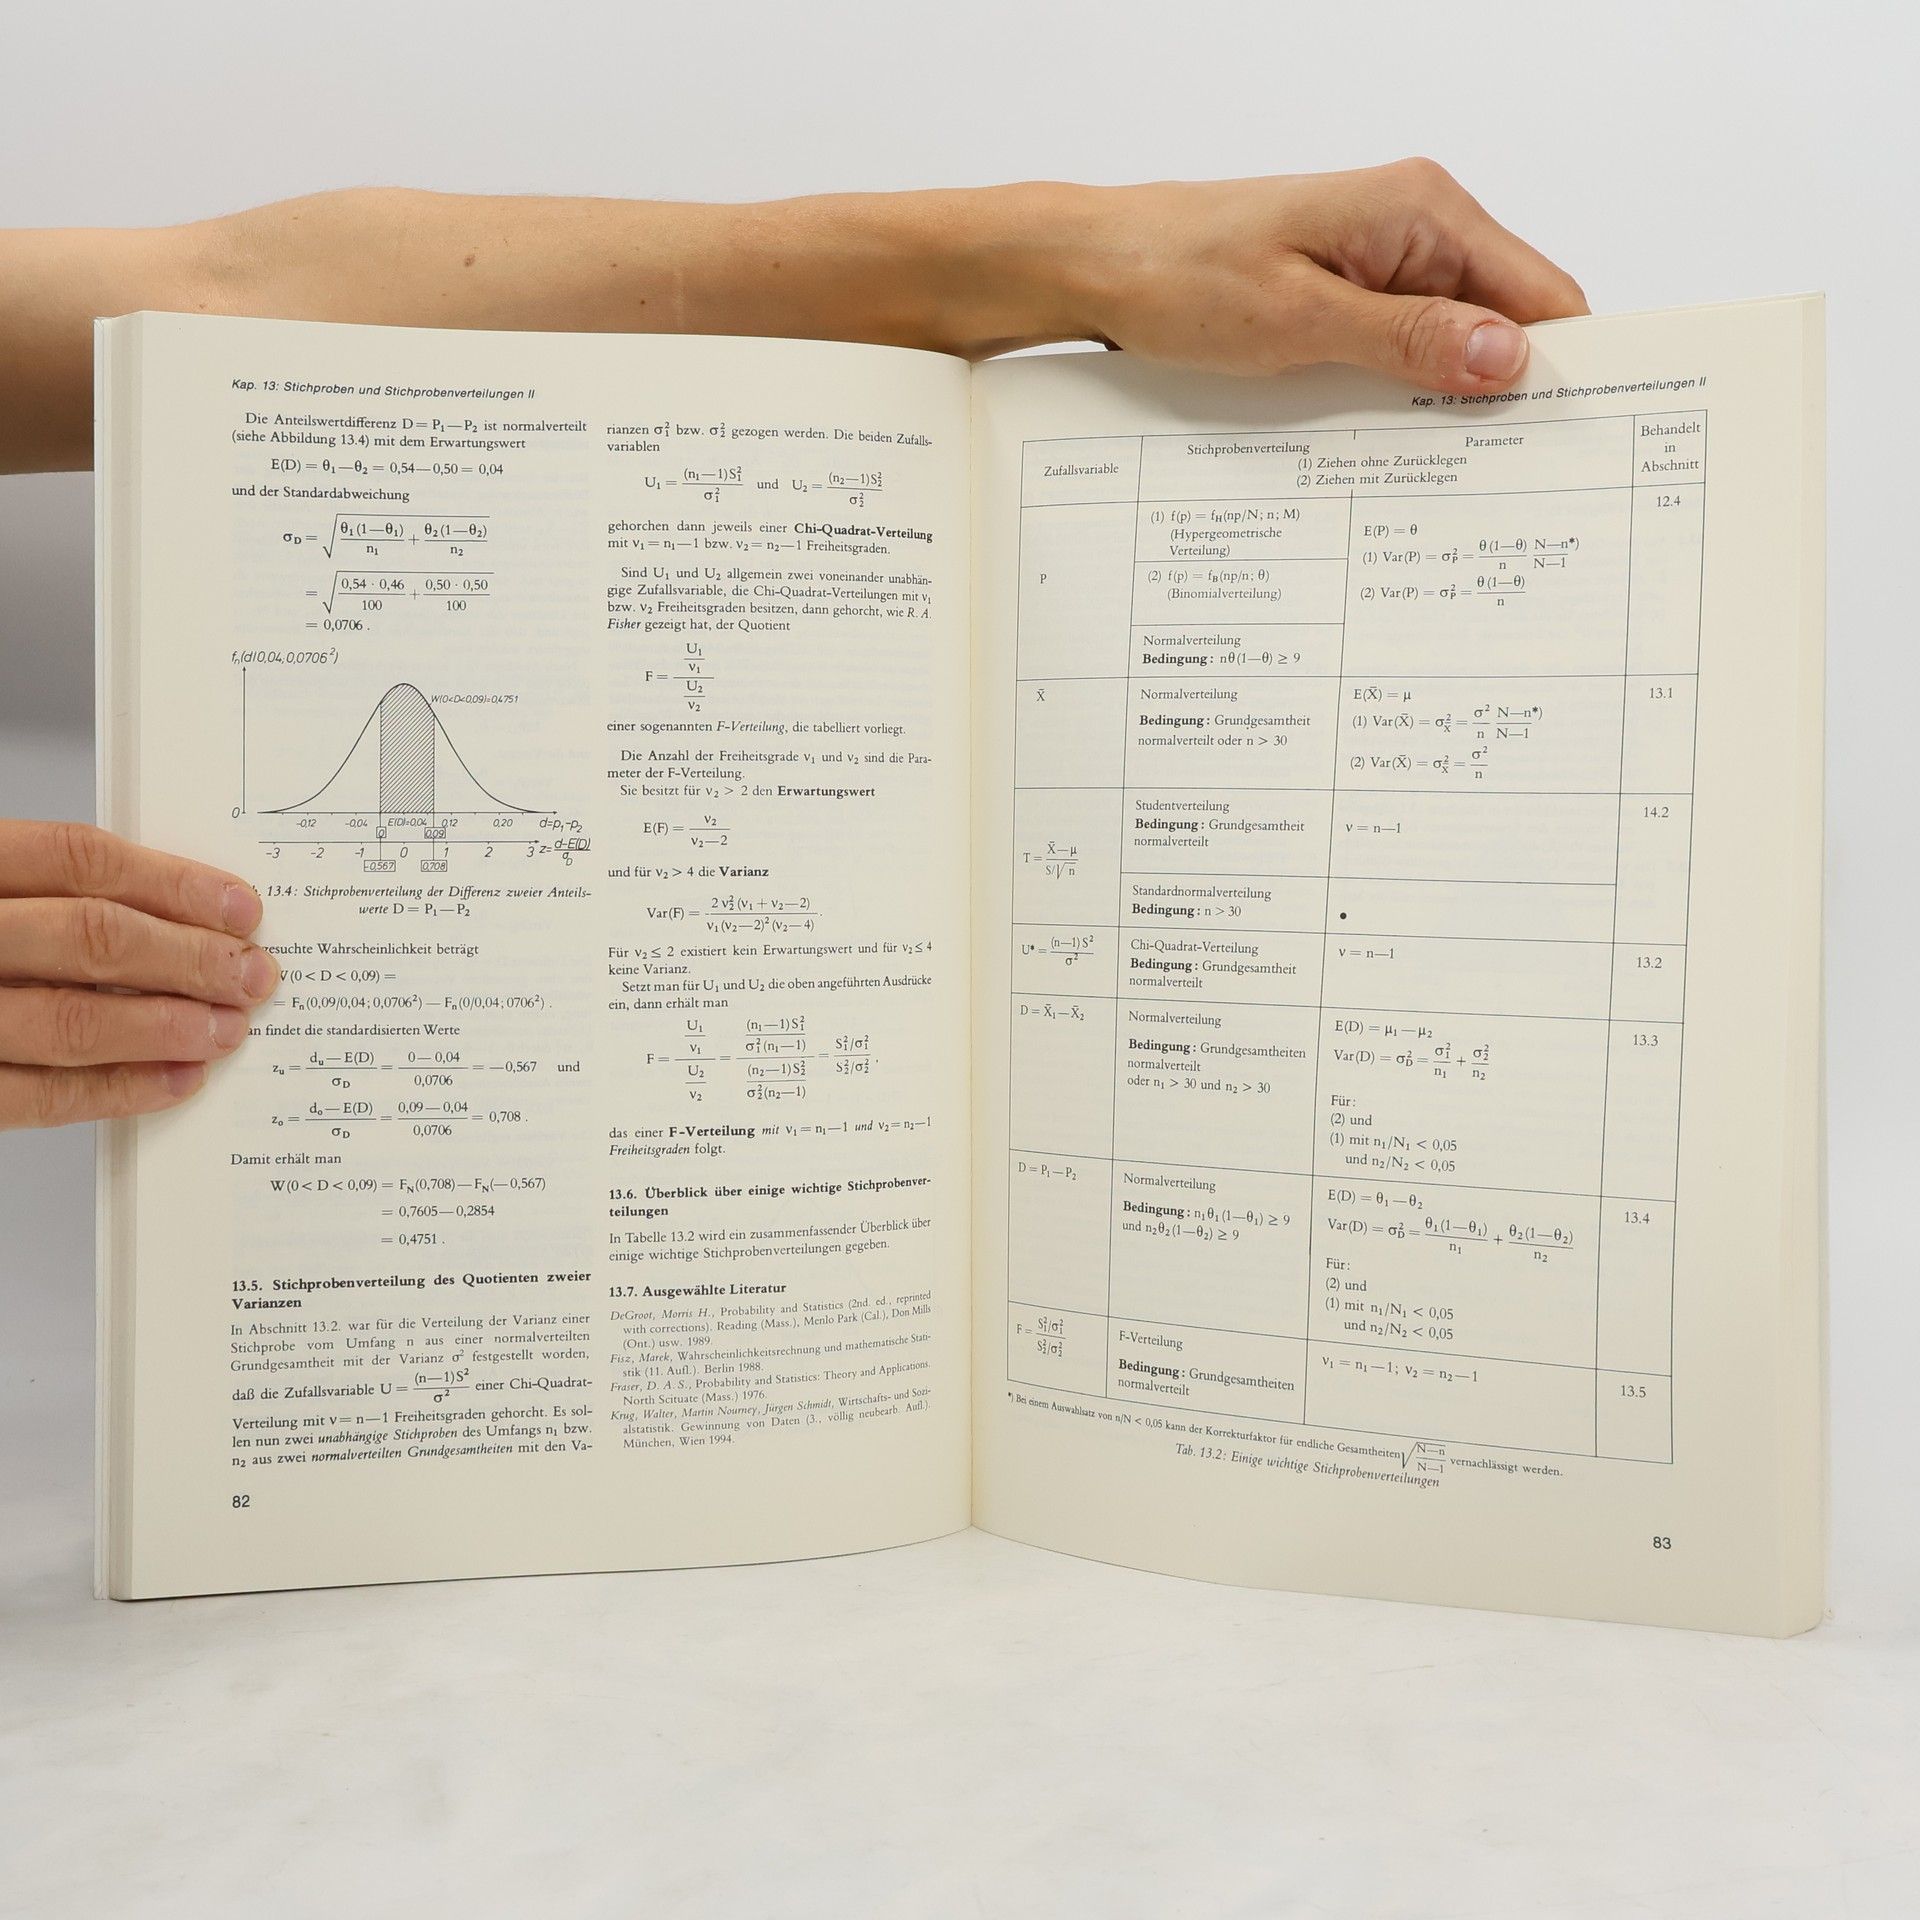 Kap. 13: Stichproben und Stichprobenverteilungen II
Die Anteilswertdifferenz D = P₁—P₂ ist normalverteilt
(siehe Abbildung 13.4) mit dem Erwartungswert
E(D) = θ₁—θ₂ = 0,54—0,50 = 0,04
und der Standardabweichung
σ_D = √(θ₁(1—θ₁)/n₁ + θ₂(1—θ₂)/n₂)
= √(0,54 · 0,46/100 + 0,50 · 0,50/100)
= 0,0706 .
fₙ(d/0,04; 0,0706²)
W(0<D<0,09)=0,4751
0
-0,12 -0,04 E(D)=0,04 0,12 0,20 d=p₁-p₂
0 0,09
-3 -2 -1 0 1 2 3 z=(d-E(D))/σ_D
-0,567 0,708
13.4: Stichprobenverteilung der Differenz zweier Anteils-
werte D = P₁—P₂
gesuchte Wahrscheinlichkeit beträgt
W(0 < D < 0,09) =
= Fₙ(0,09/0,04; 0,0706²) — Fₙ(0/0,04; 0706²) .
an findet die standardisierten Werte
z_u = (d_u — E(D))/σ_D = (0—0,04)/0,0706 = —0,567 und
z_o = (d_o — E(D))/σ_D = (0,09—0,04)/0,0706 = 0,708 .
Damit erhält man
W(0 < D < 0,09) = F_N(0,708)—F_N(—0,567)
= 0,7605—0,2854
= 0,4751 .
13.5. Stichprobenverteilung des Quotienten zweier
Varianzen
In Abschnitt 13.2. war für die Verteilung der Varianz einer
Stichprobe vom Umfang n aus einer normalverteilten
Grundgesamtheit mit der Varianz σ² festgestellt worden,
daß die Zufallsvariable U = (n—1)S²/σ² einer Chi-Quadrat-
Verteilung mit ν = n—1 Freiheitsgraden gehorcht. Es sol-
len nun zwei unabhängige Stichproben des Umfangs n₁ bzw.
n₂ aus zwei normalverteilten Grundgesamtheiten mit den Va-
82
rianzen σ₁² bzw. σ₂² gezogen werden. Die beiden Zufalls-
variablen
U₁ = (n₁—1)S₁²/σ₁² und U₂ = (n₂—1)S₂²/σ₂²
gehorchen dann jeweils einer Chi-Quadrat-Verteilung
mit ν₁ = n₁—1 bzw. ν₂ = n₂—1 Freiheitsgraden.
Sind U₁ und U₂ allgemein zwei voneinander unabhän-
gige Zufallsvariable, die Chi-Quadrat-Verteilungen mit ν₁
bzw. ν₂ Freiheitsgraden besitzen, dann gehorcht, wie R. A.
Fisher gezeigt hat, der Quotient
F = (U₁/ν₁)/(U₂/ν₂)
einer sogenannten F-Verteilung, die tabelliert vorliegt.
Die Anzahl der Freiheitsgrade ν₁ und ν₂ sind die Para-
meter der F-Verteilung.
Sie besitzt für ν₂ > 2 den Erwartungswert
E(F) = ν₂/(ν₂—2)
und für ν₂ > 4 die Varianz
Var(F) = 2 ν₂² (ν₁ + ν₂—2)/(ν₁ (ν₂—2)² (ν₂—4)) .
Für ν₂ ≤ 2 existiert kein Erwartungswert und für ν₂ ≤ 4
keine Varianz.
Setzt man für U₁ und U₂ die oben angeführten Ausdrücke
ein, dann erhält man
F = (U₁/ν₁)/(U₂/ν₂) = ((n₁—1)S₁²/σ₁²(n₁—1))/((n₂—1)S₂²/σ₂²(n₂—1)) = (S₁²/σ₁²)/(S₂²/σ₂²) ,
das einer F-Verteilung mit ν₁ = n₁—1 und ν₂ = n₂—1
Freiheitsgraden folgt.
13.6. Überblick über einige wichtige Stichprobenver-
teilungen
In Tabelle 13.2 wird ein zusammenfassender Überblick über
einige wichtige Stichprobenverteilungen gegeben.
13.7. Ausgewählte Literatur
DeGroot, Morris H., Probability and Statistics (2nd. ed., reprinted
with corrections). Reading (Mass.), Menlo Park (Cal.), Don Mills
(Ont.) usw. 1989.
Fisz, Marek, Wahrscheinlichkeitsrechnung und mathematische Stati-
stik (11. Aufl.). Berlin 1988.
Fraser, D. A. S., Probability and Statistics: Theory and Applications.
North Scituate (Mass.) 1976.
Krug, Walter, Martin Nourney, Jürgen Schmidt, Wirtschafts- und Sozi-
alstatistik. Gewinnung von Daten (3., völlig neubearb. Aufl.).
München, Wien 1994.
Kap. 13: Stichproben und Stichprobenverteilungen II
Zufallsvariable
Stichprobenverteilung Parameter
(1) Ziehen ohne Zurücklegen
(2) Ziehen mit Zurücklegen
Behandelt
in
Abschnitt
P
(1) f(p) = f_H(np/N; n; M)
(Hypergeometrische
Verteilung)
(2) f(p) = f_B(np/n; θ)
(Binomialverteilung)
Normalverteilung
Bedingung: nθ(1—θ) ≥ 9
E(P) = θ
(1) Var(P) = σ_P² = θ(1—θ)/n (N—n*)/(N—1)
(2) Var(P) = σ_P² = θ(1—θ)/n
12.4
X̄
Normalverteilung
Bedingung: Grundgesamtheit
normalverteilt oder n > 30
E(X̄) = μ
(1) Var(X̄) = σ_X̄² = σ²/n (N—n*)/(N—1)
(2) Var(X̄) = σ_X̄² = σ²/n
13.1
T = (X̄—μ)/(S/√n)
Studentverteilung
Bedingung: Grundgesamtheit
normalverteilt
ν = n—1
14.2
Standardnormalverteilung
Bedingung: n > 30
•
U* = (n—1)S²/σ²
Chi-Quadrat-Verteilung
Bedingung: Grundgesamtheit
normalverteilt
ν = n—1
13.2
D = X̄₁—X̄₂
Normalverteilung
Bedingung: Grundgesamtheiten
normalverteilt
oder n₁ > 30 und n₂ > 30
E(D) = μ₁—μ₂
Var(D) = σ_D² = σ₁²/n₁ + σ₂²/n₂
Für:
(2) und
(1) mit n₁/N₁ < 0,05
und n₂/N₂ < 0,05
13.3
D = P₁—P₂
Normalverteilung
Bedingung: n₁θ₁(1—θ₁) ≥ 9
und n₂θ₂(1—θ₂) ≥ 9
E(D) = θ₁—θ₂
Var(D) = σ_D² = θ₁(1—θ₁)/n₁ + θ₂(1—θ₂)/n₂
Für:
(2) und
(1) mit n₁/N₁ < 0,05
und n₂/N₂ < 0,05
13.4
F = (S₁²/σ₁²)/(S₂²/σ₂²)
F-Verteilung
Bedingung: Grundgesamtheiten
normalverteilt
ν₁ = n₁—1; ν₂ = n₂—1
13.5
*) Bei einem Auswahlsatz von n/N < 0,05 kann der Korrekturfaktor für endliche Gesamtheiten √((N—n)/(N—1)) vernachlässigt werden.
Tab. 13.2: Einige wichtige Stichprobenverteilungen
83